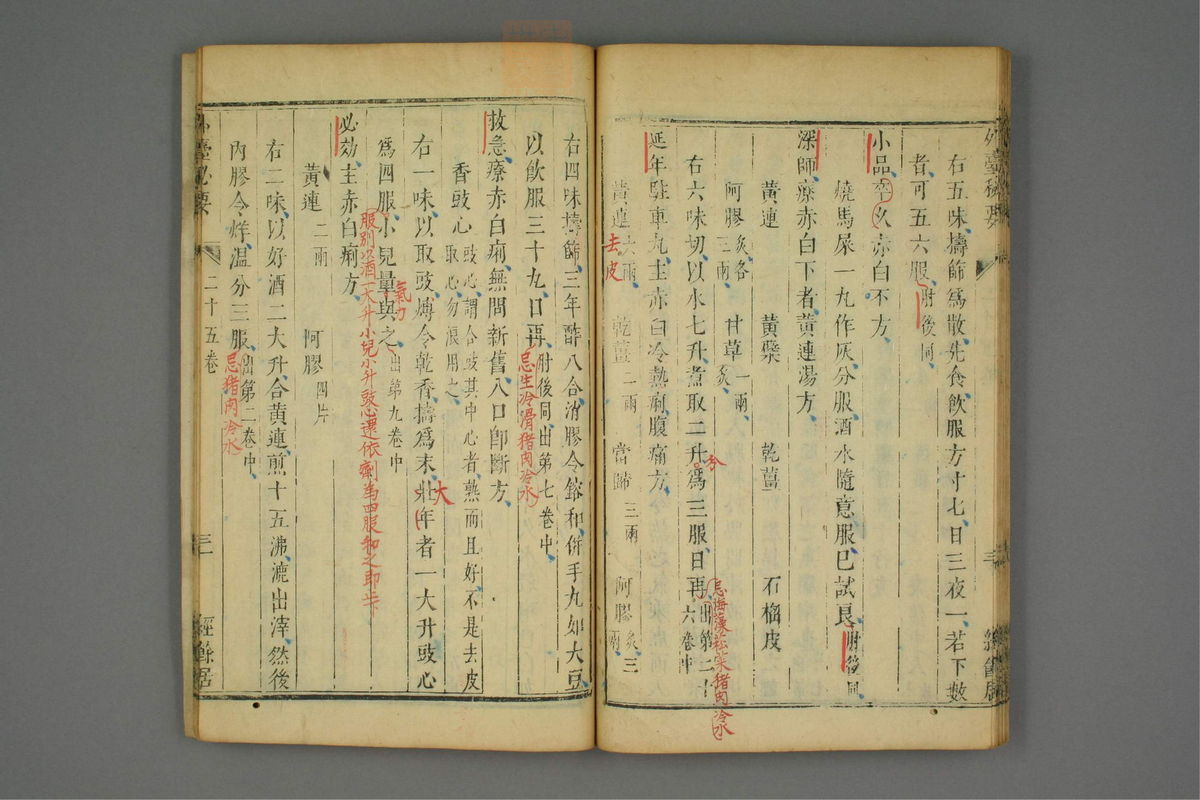 外臺秘要
右五味擣篩爲散先食飲服方寸七日三夜一若下數
者可五六服肘後同
小品卒久赤白不方
燒馬屎一丸作灰分服酒水隨意服已試良肘後同
深師療赤白下者黃連湯方
黃連 黃檗 乾薑 石榴皮
阿膠炙各二兩 甘草一兩炙
右六味切以水七升煮取二升爲三服日再出第二十六卷中
分
忌海藻菘菜猪肉冷水
延年駐車丸主赤白冷熱痢腹痛方
黃連六兩 乾薑二兩 當歸三兩 阿膠炙三兩
去皮
右四味擣篩三年酢八合消膠令鎔和併手丸如大豆
以飲服三十丸日再肘後同出第七卷中
忌生冷滑猪肉冷水
救急療赤白痢無問新舊入口卽斷方
香豉心豉心謂合豉其中心者熱而且好不是去皮取心勿浪用之
右一味以取豉愽令乾香擣爲末壯年者一大升豉心
大
爲四服小兒量與之出第九卷中
氣力
服別以酒一大升小兒小升豉惣還依劑爲四服和之即止
必効主赤白痢方
黃連二兩 阿膠四片
右二味以好酒二大升合黃連煎十五沸漉出滓然後
內膠令烊温分三服出第二卷中
忌猪肉冷水
外臺秘要 二十五卷 三 經餘居